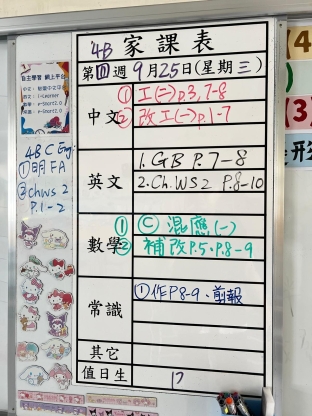 4B 家課表
第四週 9月25日(星期三)
中文
① 工(二)p.3,7-8
② 改工(一)p.1-7
英文
1. GB P.7-8
2. Ch.WS2 P.8-10
數學
① Ⓒ 混應(一)
② 補改P.5、P.8-9
常識
① 作P8-9、剪報
其它
值日生
17
自主學習 網上平台
4B C Eng
① 明 FA
② Ch WS 2
P.1-2
(4
(3)